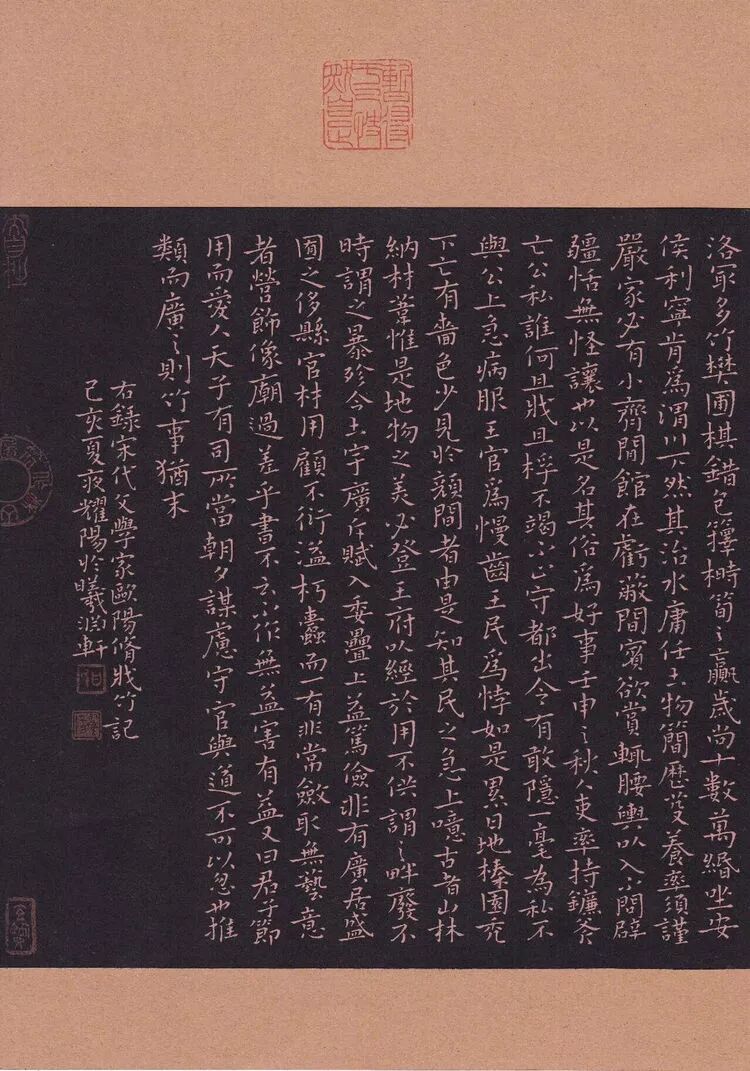 洛冣多竹樊圃棋錯包籜榯筍之贏歲尚十數萬緡坐安
侯利寧肯爲渭川下然其治水庸任土物簡歷芟養率須謹
嚴家必有小齋閒館在虧蔽間賓欲賞輒腰輿以入不問辟
疆恬無怪讓也以是名其俗爲好事壬申之秋人吏率持鐮斧
亡公私誰何且戕且桴不竭不止守都出令有敢隱一毫為私不
與公上急病服王官爲慢齒王民爲悖如是累日地榛園禿
下亡有嗇色少見於顏間者由是知其民之急上噫古者山林
納材葦惟是地物之美必登王府以經於用不供謂之畔廢不
時謂之暴殄今土宇廣斥賦入委疊上益篤儉非有廣居盛
囿之侈縣官材用顧不衍溢朽蠹而一有非常斂取無藝意
者營飾像廟過差乎書不云不作無益害有益又曰君子節
用而愛人天子有司所當朝夕謀慮守官與道不可以忽也推
類而廣之則竹事猶末
右錄宋代文學家歐陽脩戕竹記
己亥夏夜耀陽於曦淵軒